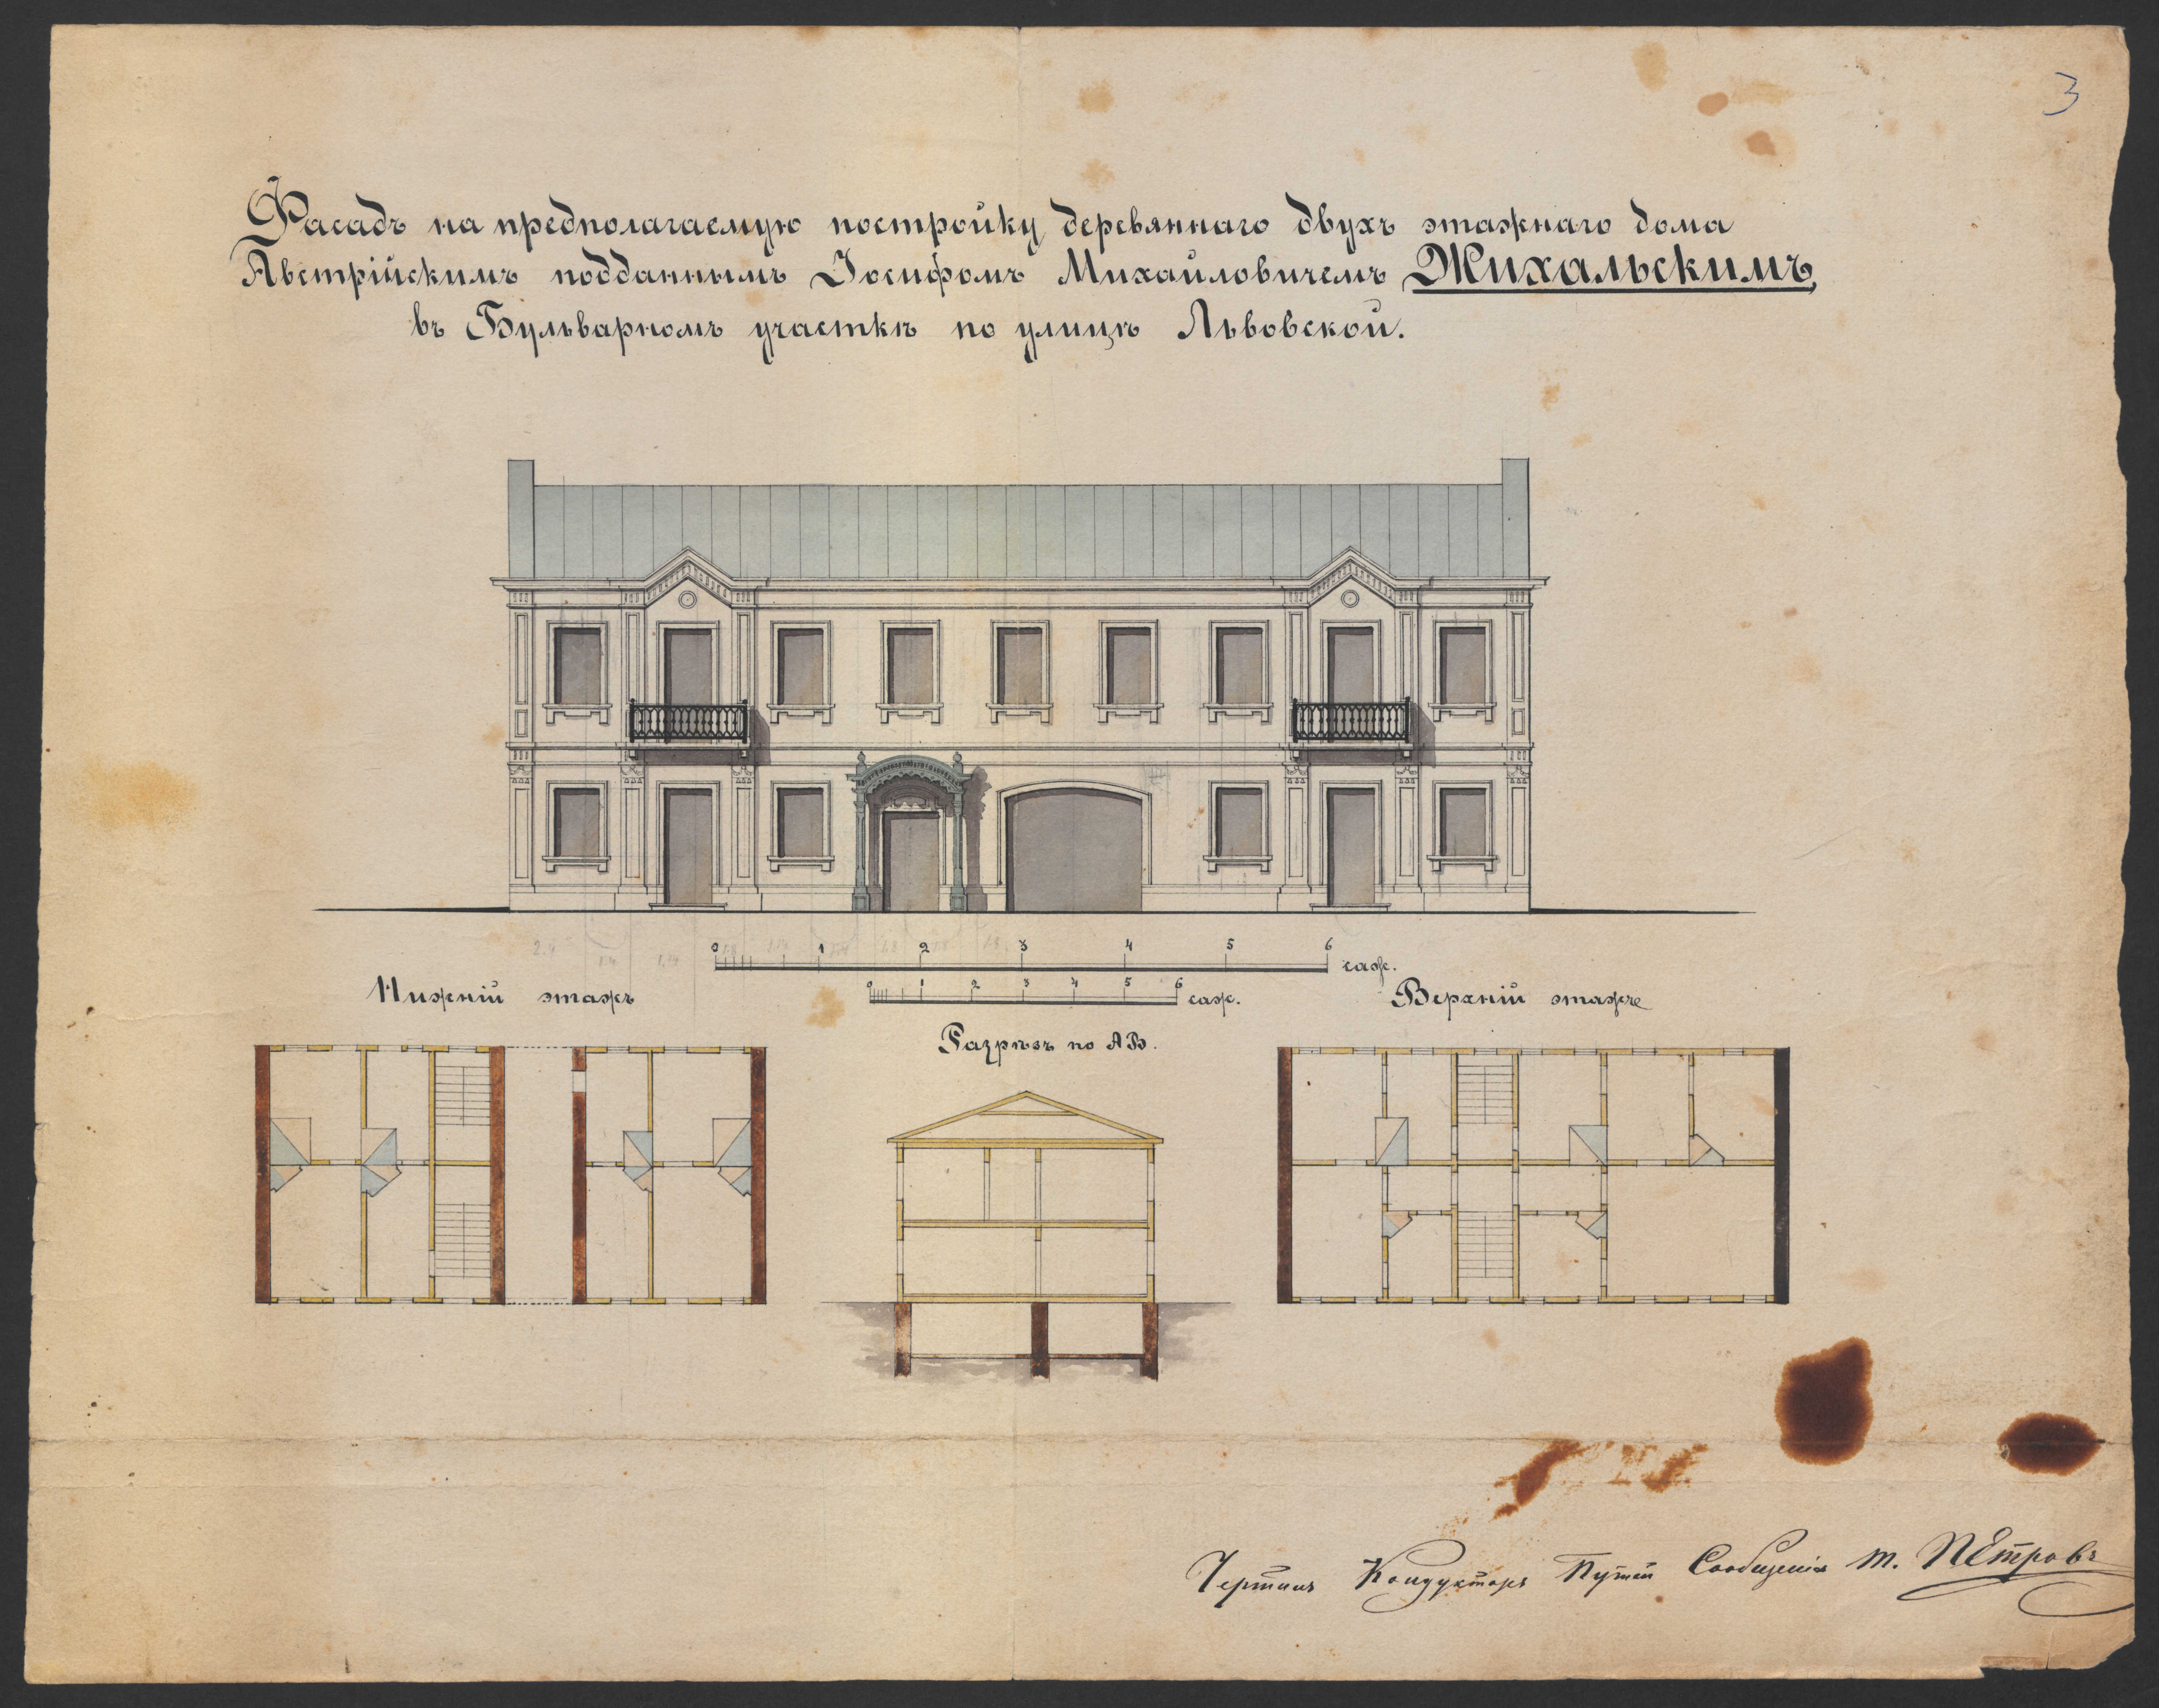 3
Фасадъ на предполагаемую постройку деревяннаго двухъ этажнаго дома
Австрійскимъ подданнымъ Іосифомъ Михайловичемъ Жихальскимъ,
въ Бульварномъ участкѣ по улицѣ Львовской.
0 1 2 3 4 5 6 саж.
0 1 2 3 4 5 6 саж.
Нижній этажъ
Верхній этажъ
Разрѣзъ по АВ.
Чертилъ Кондукторъ Путей Сообщенія М. Петровъ